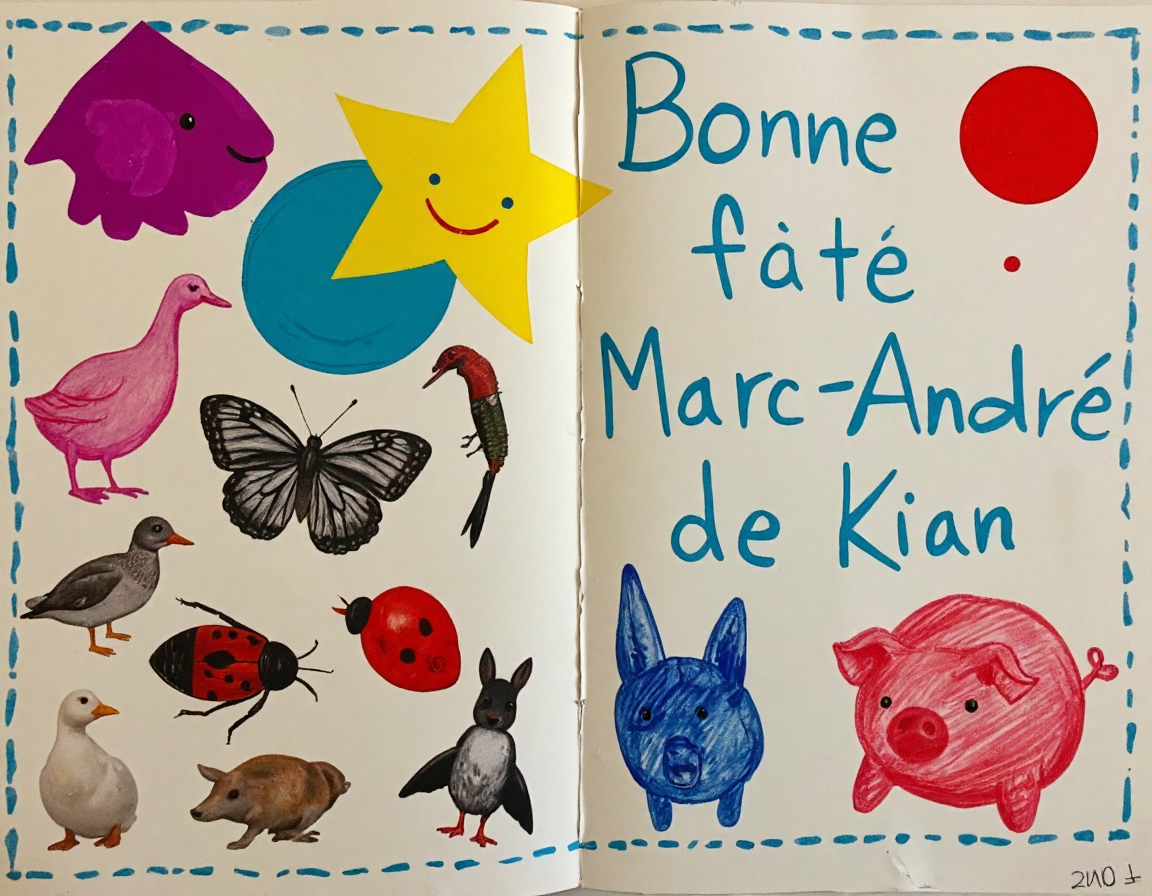 Bonne
fàté
Marc-André
de Kian